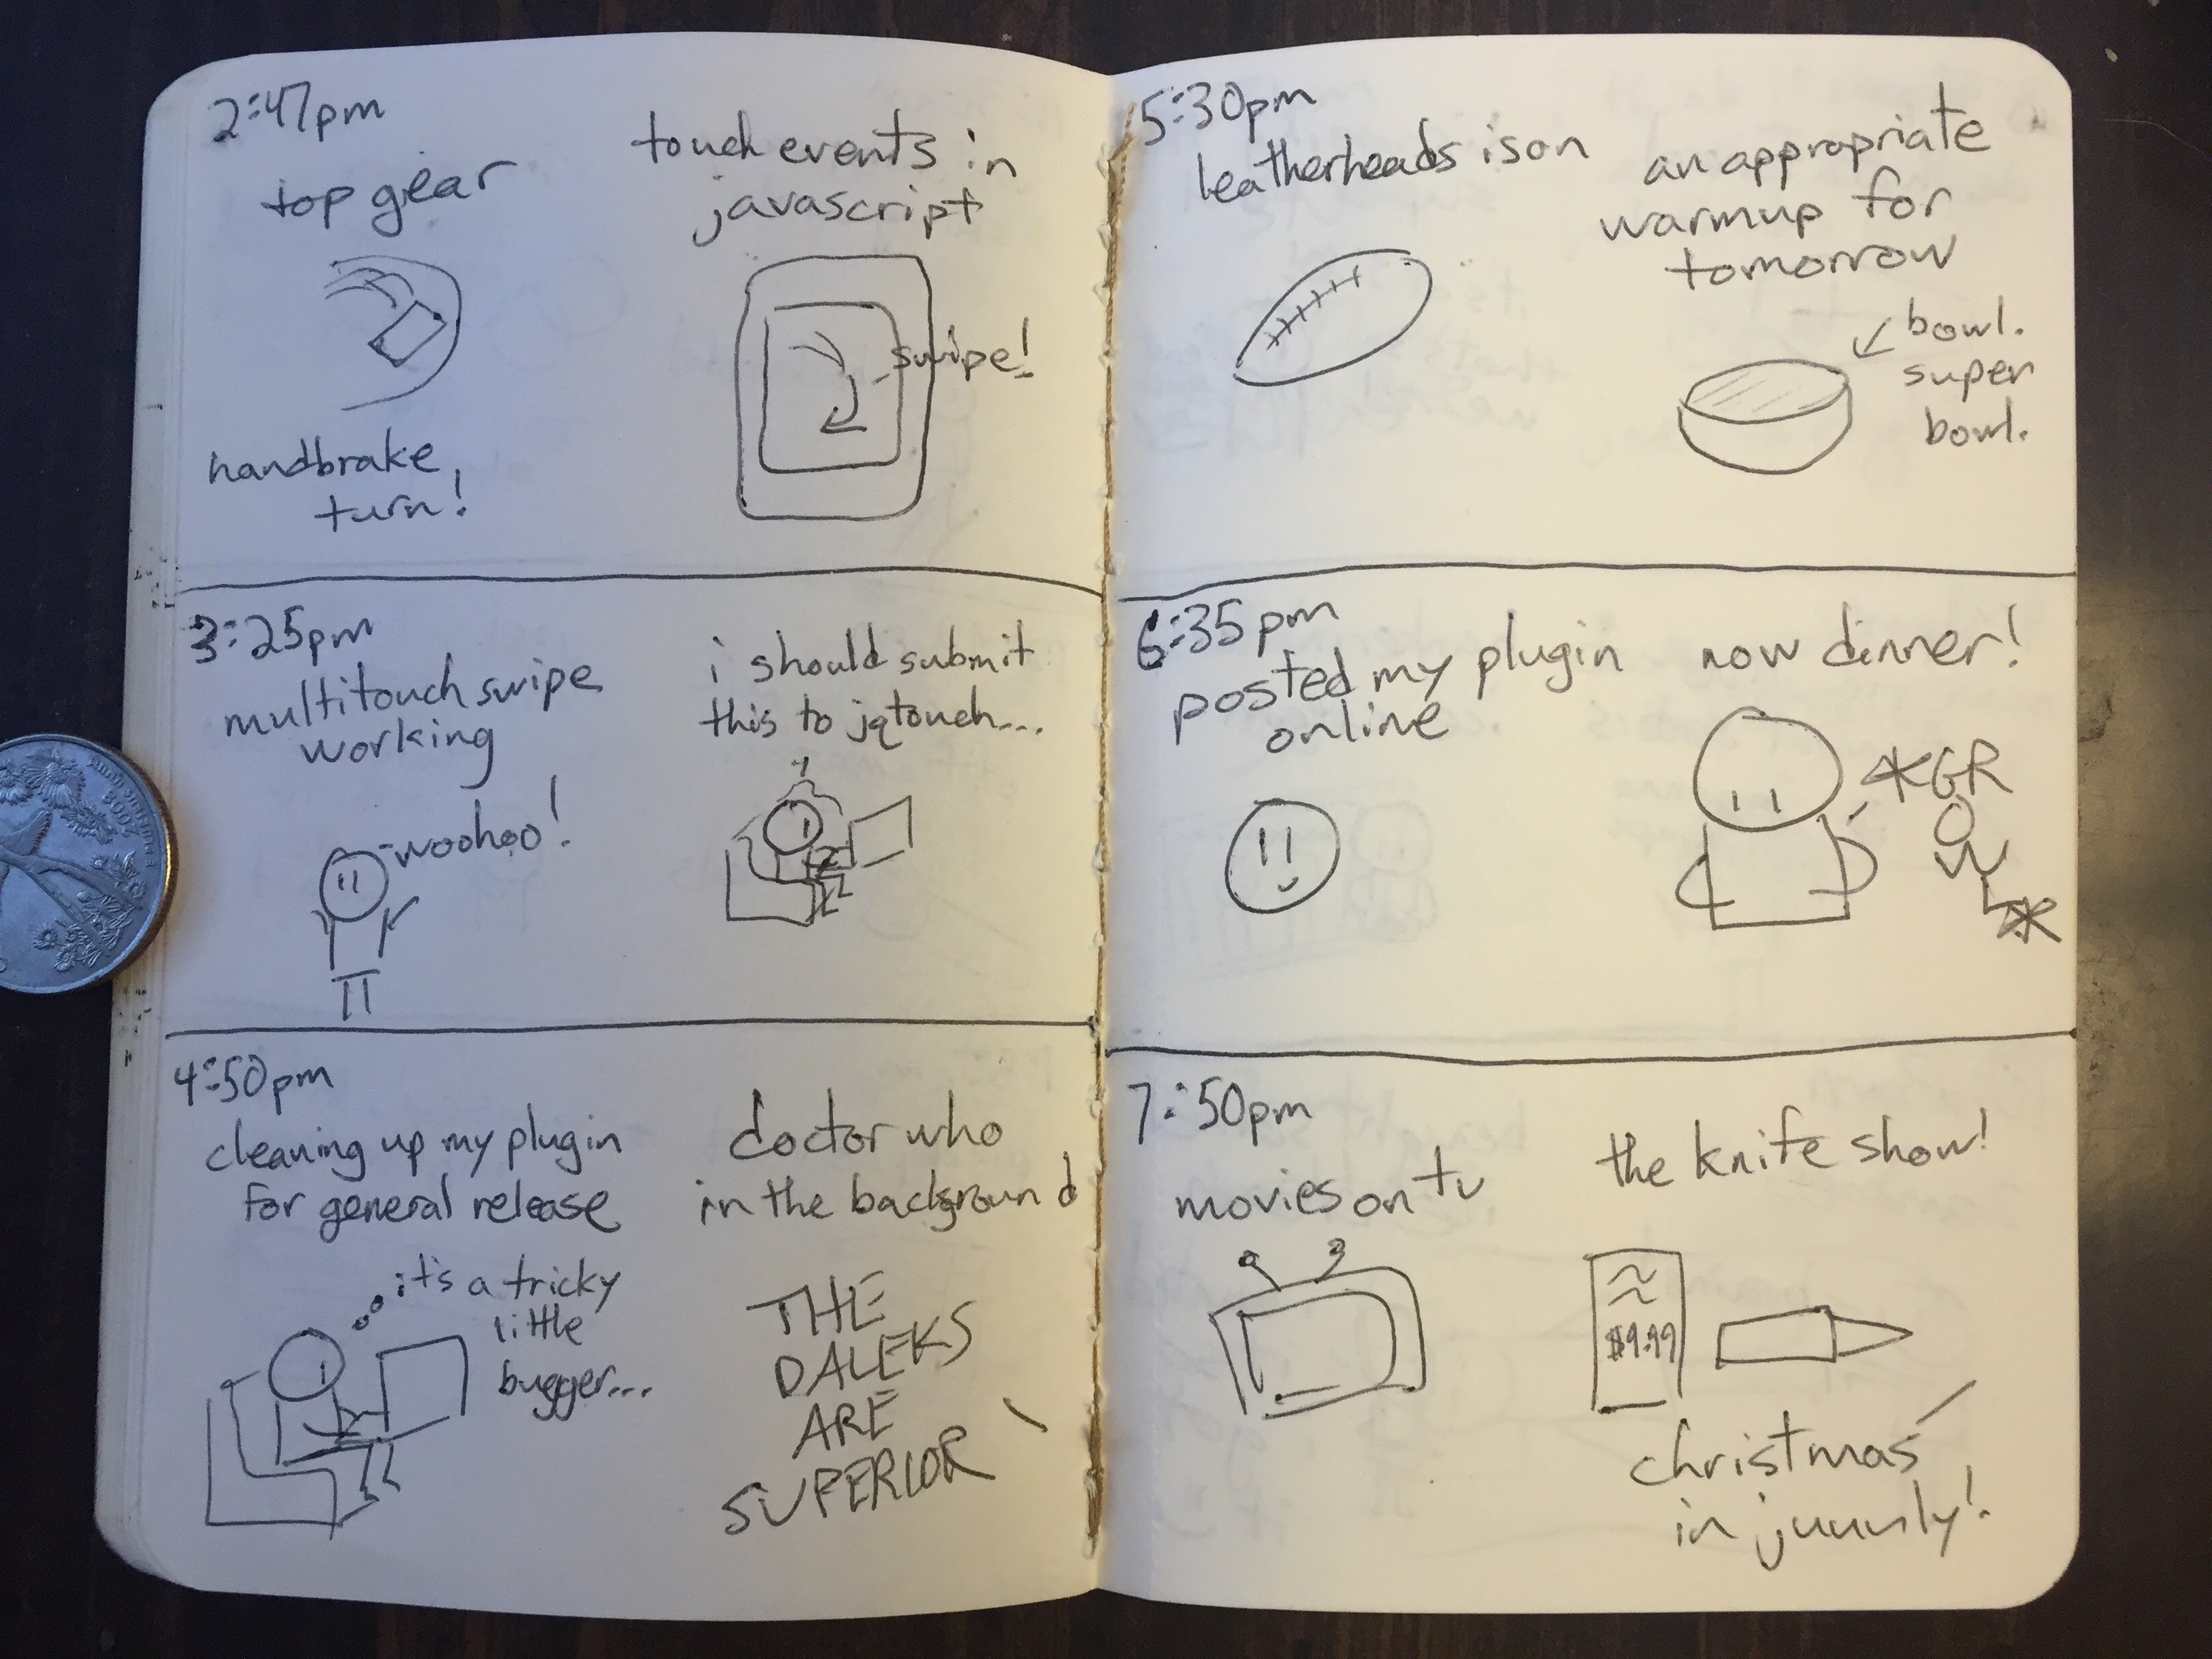 2:47pm
top gear
handbrake
turn!
touch events in
javascript
swipe!
3:25pm
multitouch swipe
working
woohoo!
i should submit
this to jqtouch...
4:50pm
cleaning up my plugin
for general release
it's a tricky
little
bugger...
doctor who
in the background
THE
DALEKS
ARE
SUPERIOR
5:30pm
leatherheads is on
an appropriate
warmup for
tomorrow
bowl.
super
bowl.
6:35pm
posted my plugin
online
now dinner!
*GR
O
W
L*
7:50pm
movies on tv
the knife show!
$9.99
christmas
in juuuly!
2008